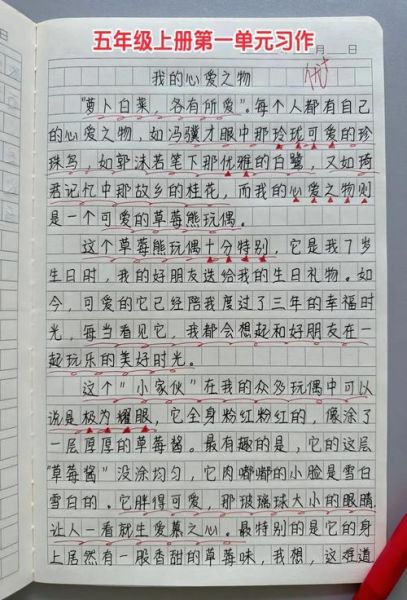 五年级上册第一单元习作
月 日
我的心爱之物
优+
“萝卜白菜，各有所爱”。每个人都有自
己的心爱之物，如冯骥才眼中那玲珑可爱的珍
珠鸟，如郭沫若笔下那优雅的白鹭，又如琦
君记忆中那故乡的桂花，而我的心爱之物则
是一个可爱的草莓熊玩偶。
这个草莓熊玩偶十分特别，它是我7岁
生日时，我的好朋友送给我的生日礼物。如
今，可爱的它已经陪我度过了三年的幸福时
光，每当看见它，我都会想起和好朋友在一
起玩乐的美好时光。
这个“小家伙”在我的众多玩偶中可以
说是极为耀眼，它全身粉红粉红的，像涂了
一层厚厚的草莓酱。最有趣的是，它的这层
“草莓酱”没涂均匀，它肉嘟嘟的小脸是雪白
雪白的。它胖得可爱，那玻璃球大小的眼睛，
让人一看就生爱慕之心。最特别的是它的身
上居然有一股香甜的草莓味，我想，这难道